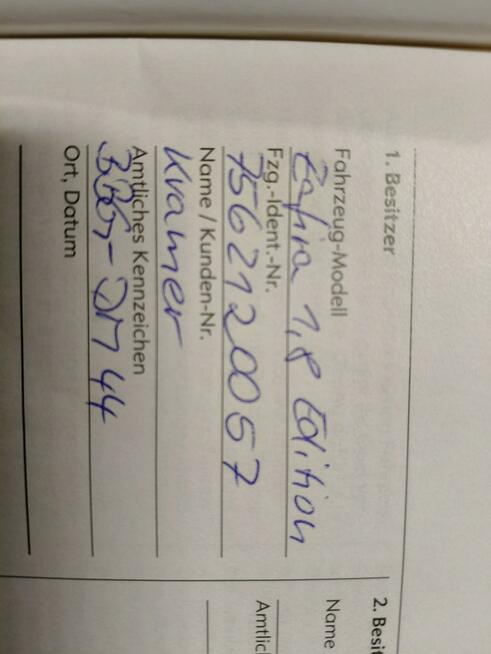 1. Besitzer
Fahrzeug-Modell
Zafira 1,8 Edition
Fzg.-Ident.-Nr.
756212 0057
Name / Kunden-Nr.
Kramer
Amtliches Kennzeichen
DM 44
Ort, Datum
2.
Name